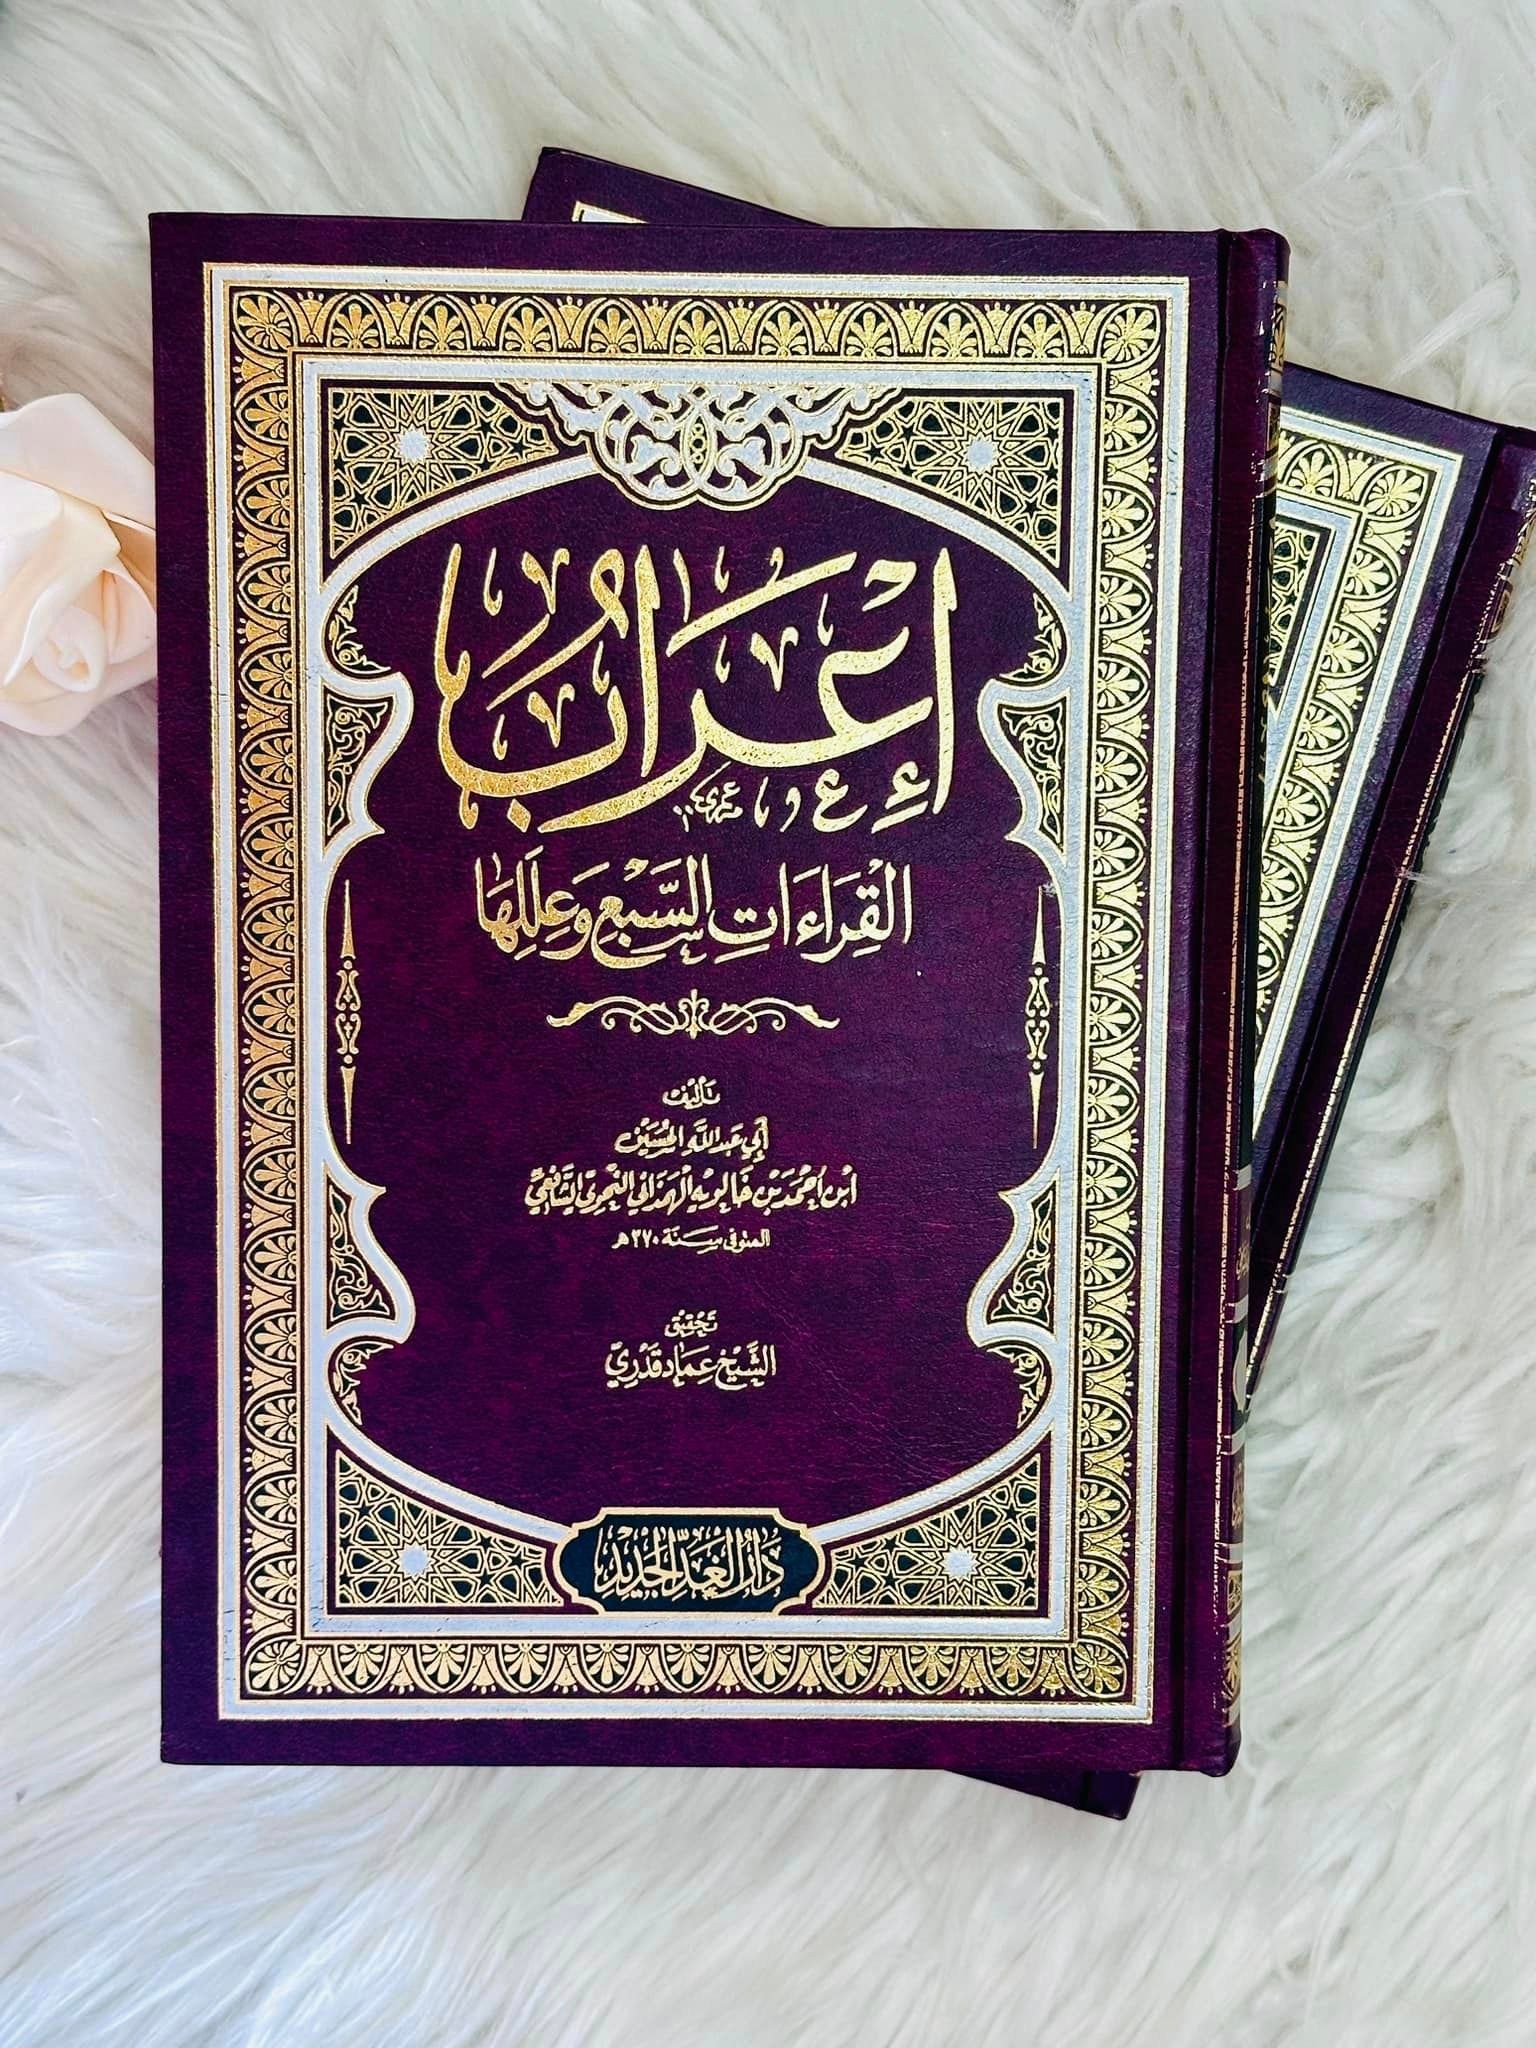 إِعْرَابُ
القِرَاءَاتِ السَّبْعِ وَعِلَلِهَا
تأليف
أبي عبد الله الحسين
ابن أحمد بن خالويه الهمذاني النحوي الشافعي
المتوفى سنة ٣٧٠هـ
تحقيق
الشيخ عماد قدري
دار الغد الجديد